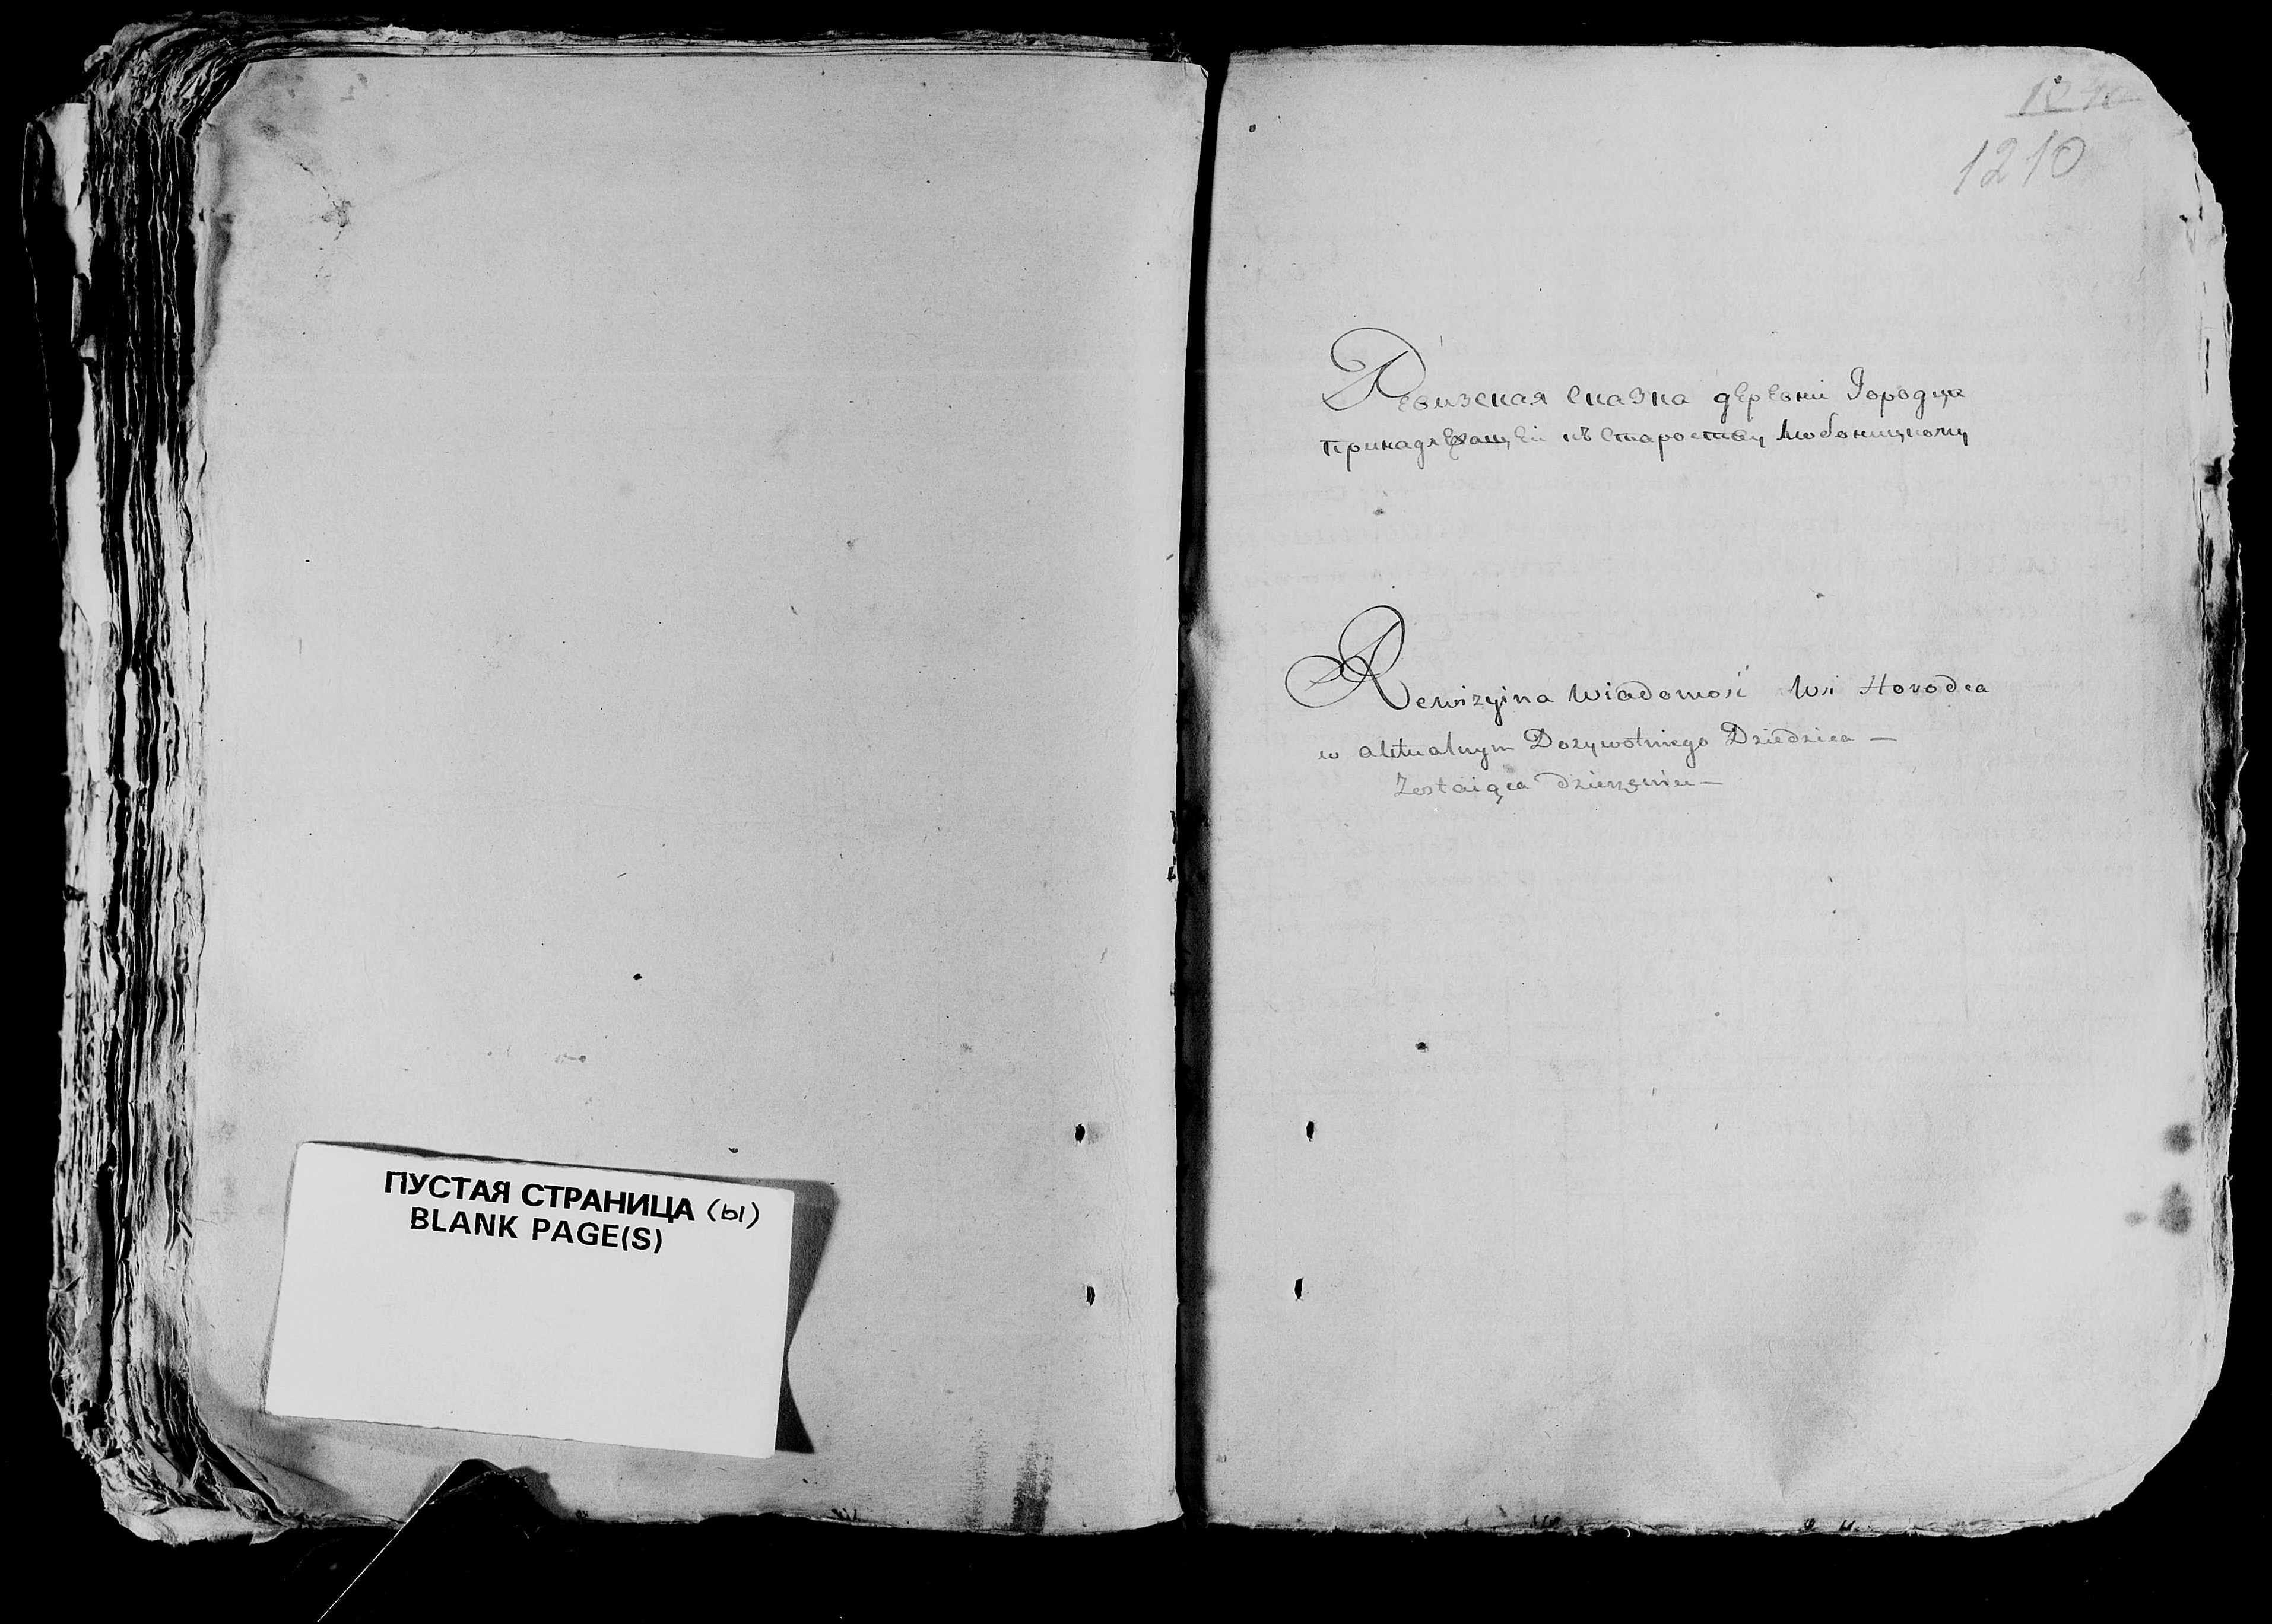 ПУСТАЯ СТРАНИЦА (ы)
BLANK PAGE(S)
1210
Ревизская сказка деревни Городца
принадлежащей къ староству Любоницкому
Rewizyina Wiadomość Wsi Horodca
w aktualnym Dozywotniego Dziedzica —
Zostaiąca dzierzeniu —